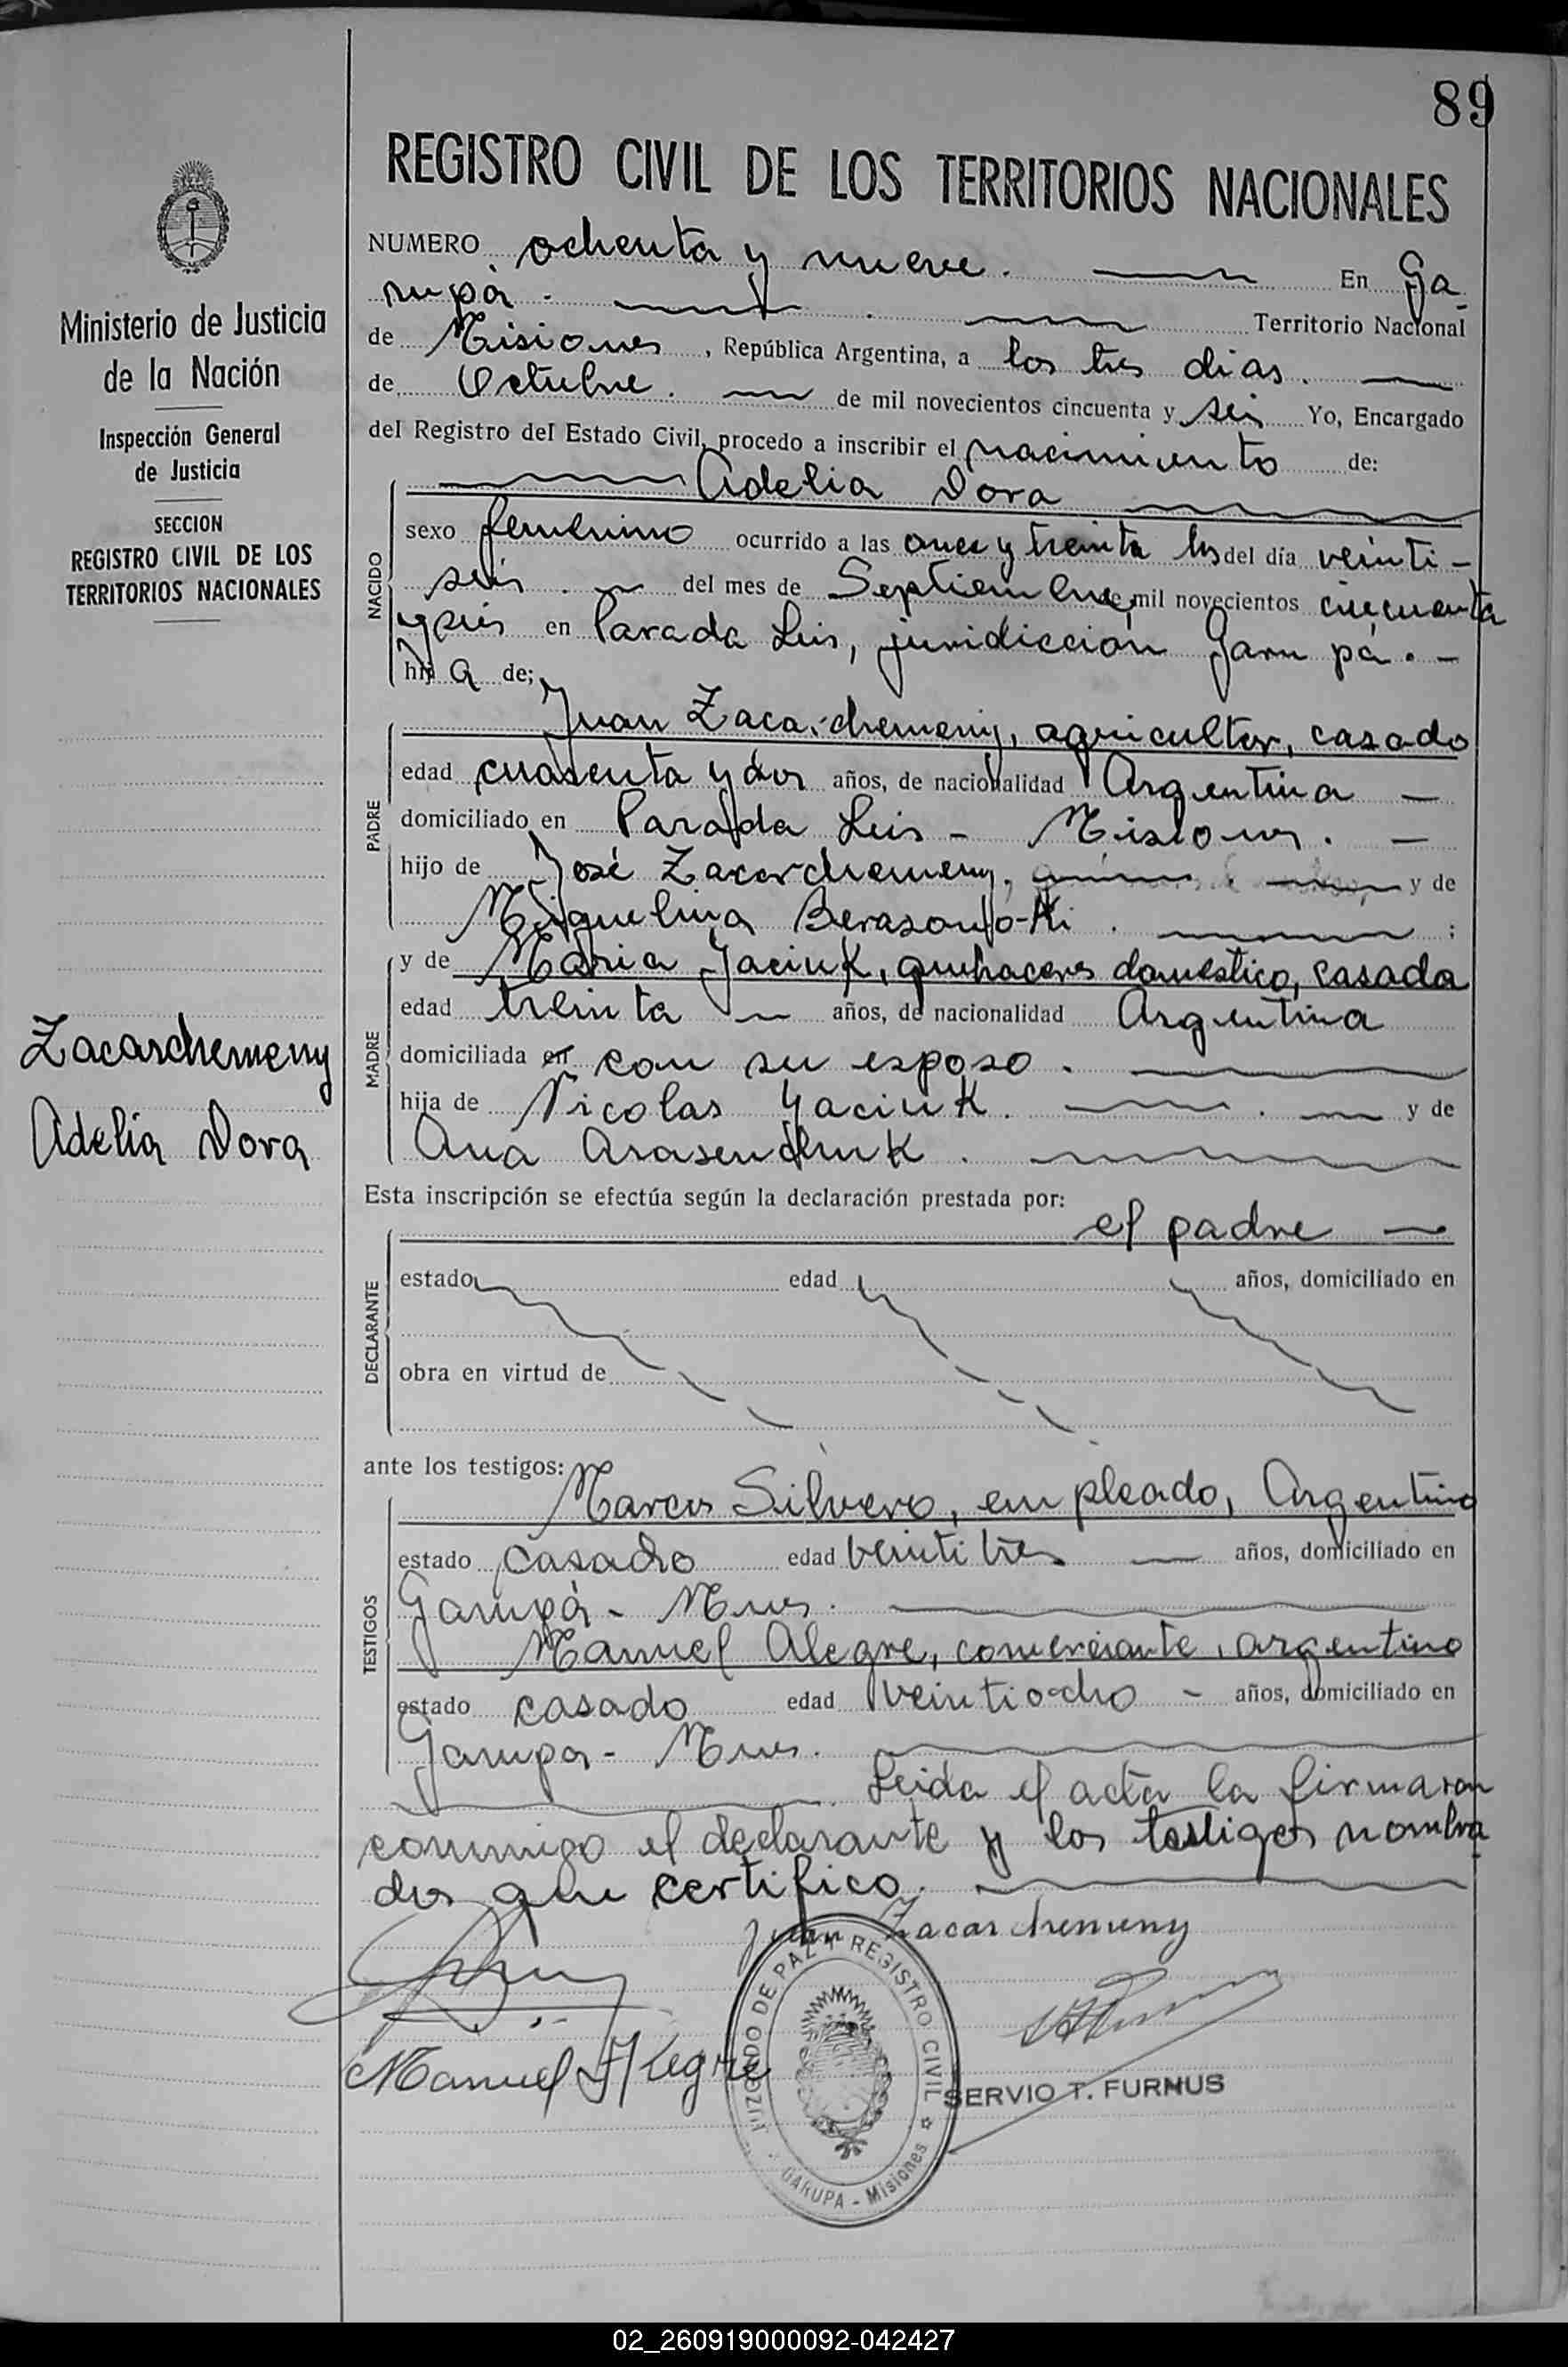 89
REGISTRO CIVIL DE LOS TERRITORIOS NACIONALES
Ministerio de Justicia
de la Nación
Inspección General
de Justicia
SECCION
REGISTRO CIVIL DE LOS
TERRITORIOS NACIONALES
Zacarchemeny
Adelia Dora
NUMERO ochenta y nueve. En Ga-
rupá. Territorio Nacional
de Misiones, República Argentina, a los tres dias.
de Octubre. de mil novecientos cincuenta y seis Yo, Encargado
del Registro del Estado Civil, procedo a inscribir el nacimiento de:
Adelia Dora
NACIDO
sexo femenino ocurrido a las once y treinta hs del día veinti-
seis. del mes de Septiembre de mil novecientos cincuenta
y seis en Parada Leis, juridicción Garupá. -
hija de;
PADRE
Juan Zacarchemeny, agricultor, casado
edad cuarenta y dos años, de nacionalidad Argentina -
domiciliado en Parada Leis - Misiones. -
hijo de José Zacarchemeny, y de
Miquelina ;
MADRE
y de Maria Jaciuk, quehaceres domestico, casada
edad treinta años, de nacionalidad Argentina
domiciliada en con su esposo.
hija de Nicolas Yaciuk. y de
Ana
Esta inscripción se efectúa según la declaración prestada por:
el padre
DECLARANTE
estado edad años, domiciliado en
obra en virtud de
ante los testigos:
TESTIGOS
Marcos Silvero, empleado, Argentino
estado casado edad veintitres años, domiciliado en
Garupá - Mnes.
Manuel Alegre, comerciante, argentino
estado casado edad veintiocho - años, domiciliado en
Garupa - Mnes.
Leida el acta la firmaron
conmigo el declarante y los testigos nombra-
dos que certifico.
Juan Zacarchemeny
Manuel Alegre
JUZGADO DE PAZ Y REGISTRO CIVIL
GARUPA - Misiones
SERVIO T. FURNUS
02_260919000092-042427